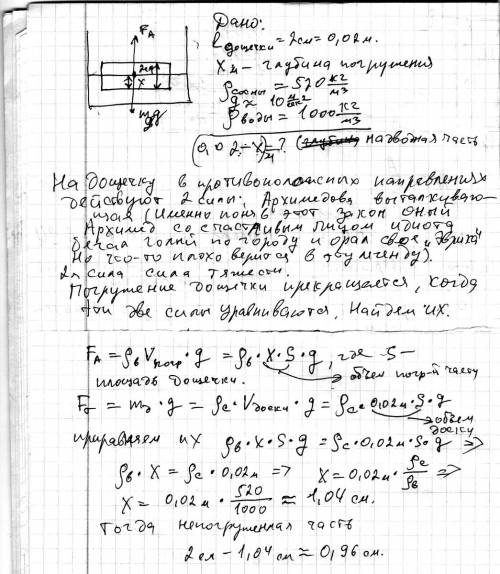 FA
2см
x
mg
Дано:
lдощечки = 2см = 0,02 м.
Xм – глубина погружения
ρсосны = 520 кг/м3
g ≈ 10 м/с2
ρводы = 1000 кг/м3
(0,02 – X)м = ? (надводная часть
На дощечку в противоположных направлениях
действуют 2 силы. Архимедова выталкиваю-
щая (Именно поняв этот закон оный
Архимед со счастливым лицом идиота
бегал голый по городу и орал свое "Эврика"
Но что-то плохо верится в эту легенду).
2я сила сила тяжести.
Погружение дощечки прекращается, когда
эти две силы уравниваются, Найдем их.
FA = ρв Vпогр · g = ρв · X · S · g, где S –
площадь дощечки. объем погр-й части
FT = mд · g = ρс · Vдоски · g = ρс · 0,02м · S · g
объем
доски
приравняем их ρв · X · S · g = ρс · 0,02м · S · g =>
ρв · X = ρс · 0,02м => X = 0,02м · ρс/ρв =>
X = 0,02м · 520/1000 ≈ 1,04 см.
Тогда непогруженная часть
2см – 1,04 см ≈ 0,96 см.